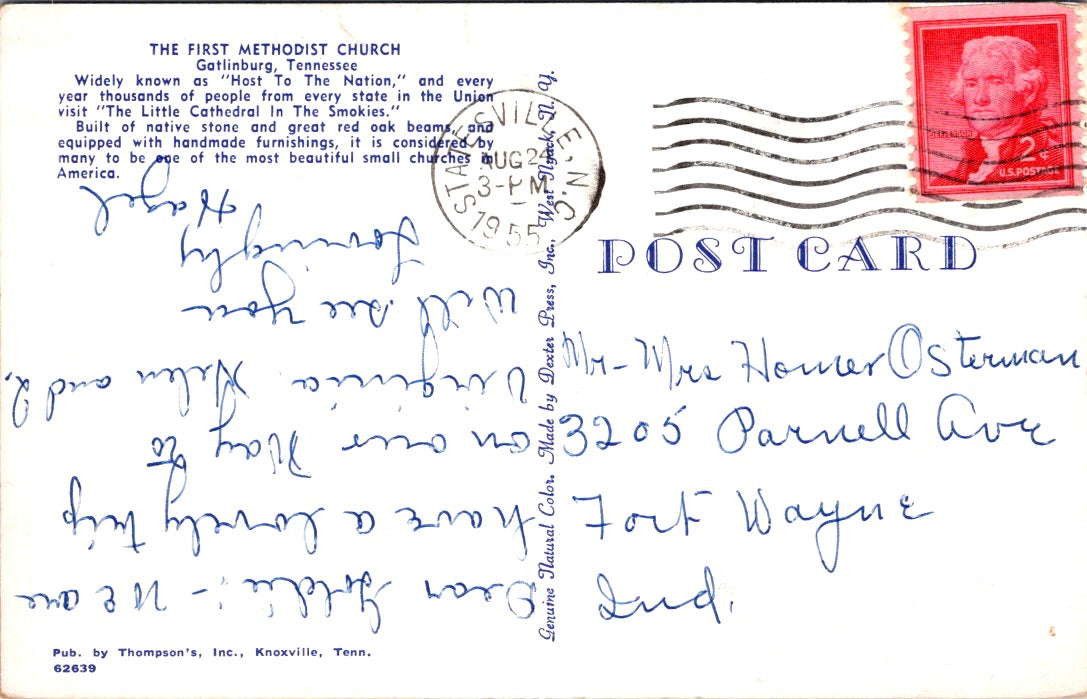 THE FIRST METHODIST CHURCH
Gatlinburg, Tennessee
Widely known as "Host To The Nation," and every
year thousands of people from every state in the Union
visit "The Little Cathedral In The Smokies."
Built of native stone and great red oak beams, and
equipped with handmade furnishings, it is considered by
many to be one of the most beautiful small churches in
America.
STATESVILLE, N.C.
AUG 24
3-PM
1955
JEFFERSON
2¢
U.S. POSTAGE
POST CARD
Mr - Mrs Homer Osterman
3205 Parnell Ave
Fort Wayne
Ind.
Dear Goldie :- We are
have a lovely trip
on our Way to
Virginia. Helen and I,
Will see you
Lovingly
Hazel
Genuine Natural Color. Made by Dexter Press, Inc., West Nyack, N. Y.
Pub. by Thompson's, Inc., Knoxville, Tenn.
62639